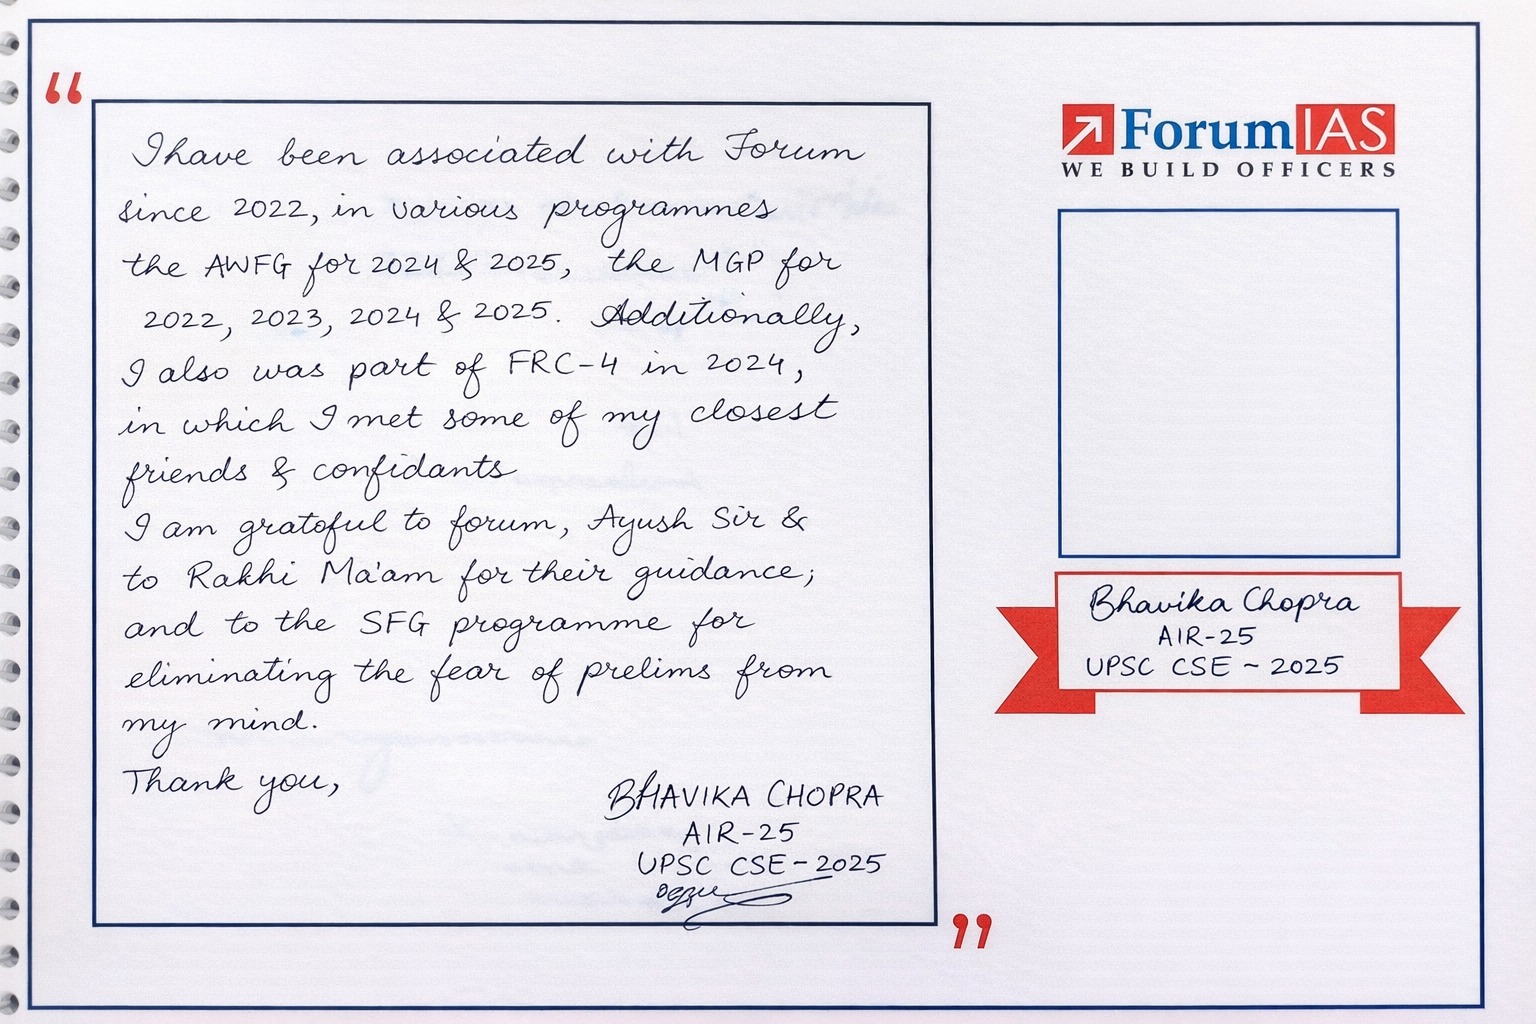 I have been associated with Forum
since 2022, in various programmes
the AWFG for 2024 & 2025, the MGP for
2022, 2023, 2024 & 2025. Additionally,
I also was part of FRC-4 in 2024,
in which I met some of my closest
friends & confidants
I am grateful to forum, Ayush Sir &
to Rakhi Ma'am for their guidance;
and to the SFG programme for
eliminating the fear of prelims from
my mind.
Thank you,
BHAVIKA CHOPRA
AIR-25
UPSC CSE-2025
ForumIAS
WE BUILD OFFICERS
Bhavika Chopra
AIR-25
UPSC CSE - 2025